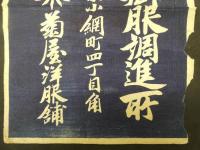 服調進所
小網町四丁目角
菊屋洋服舗